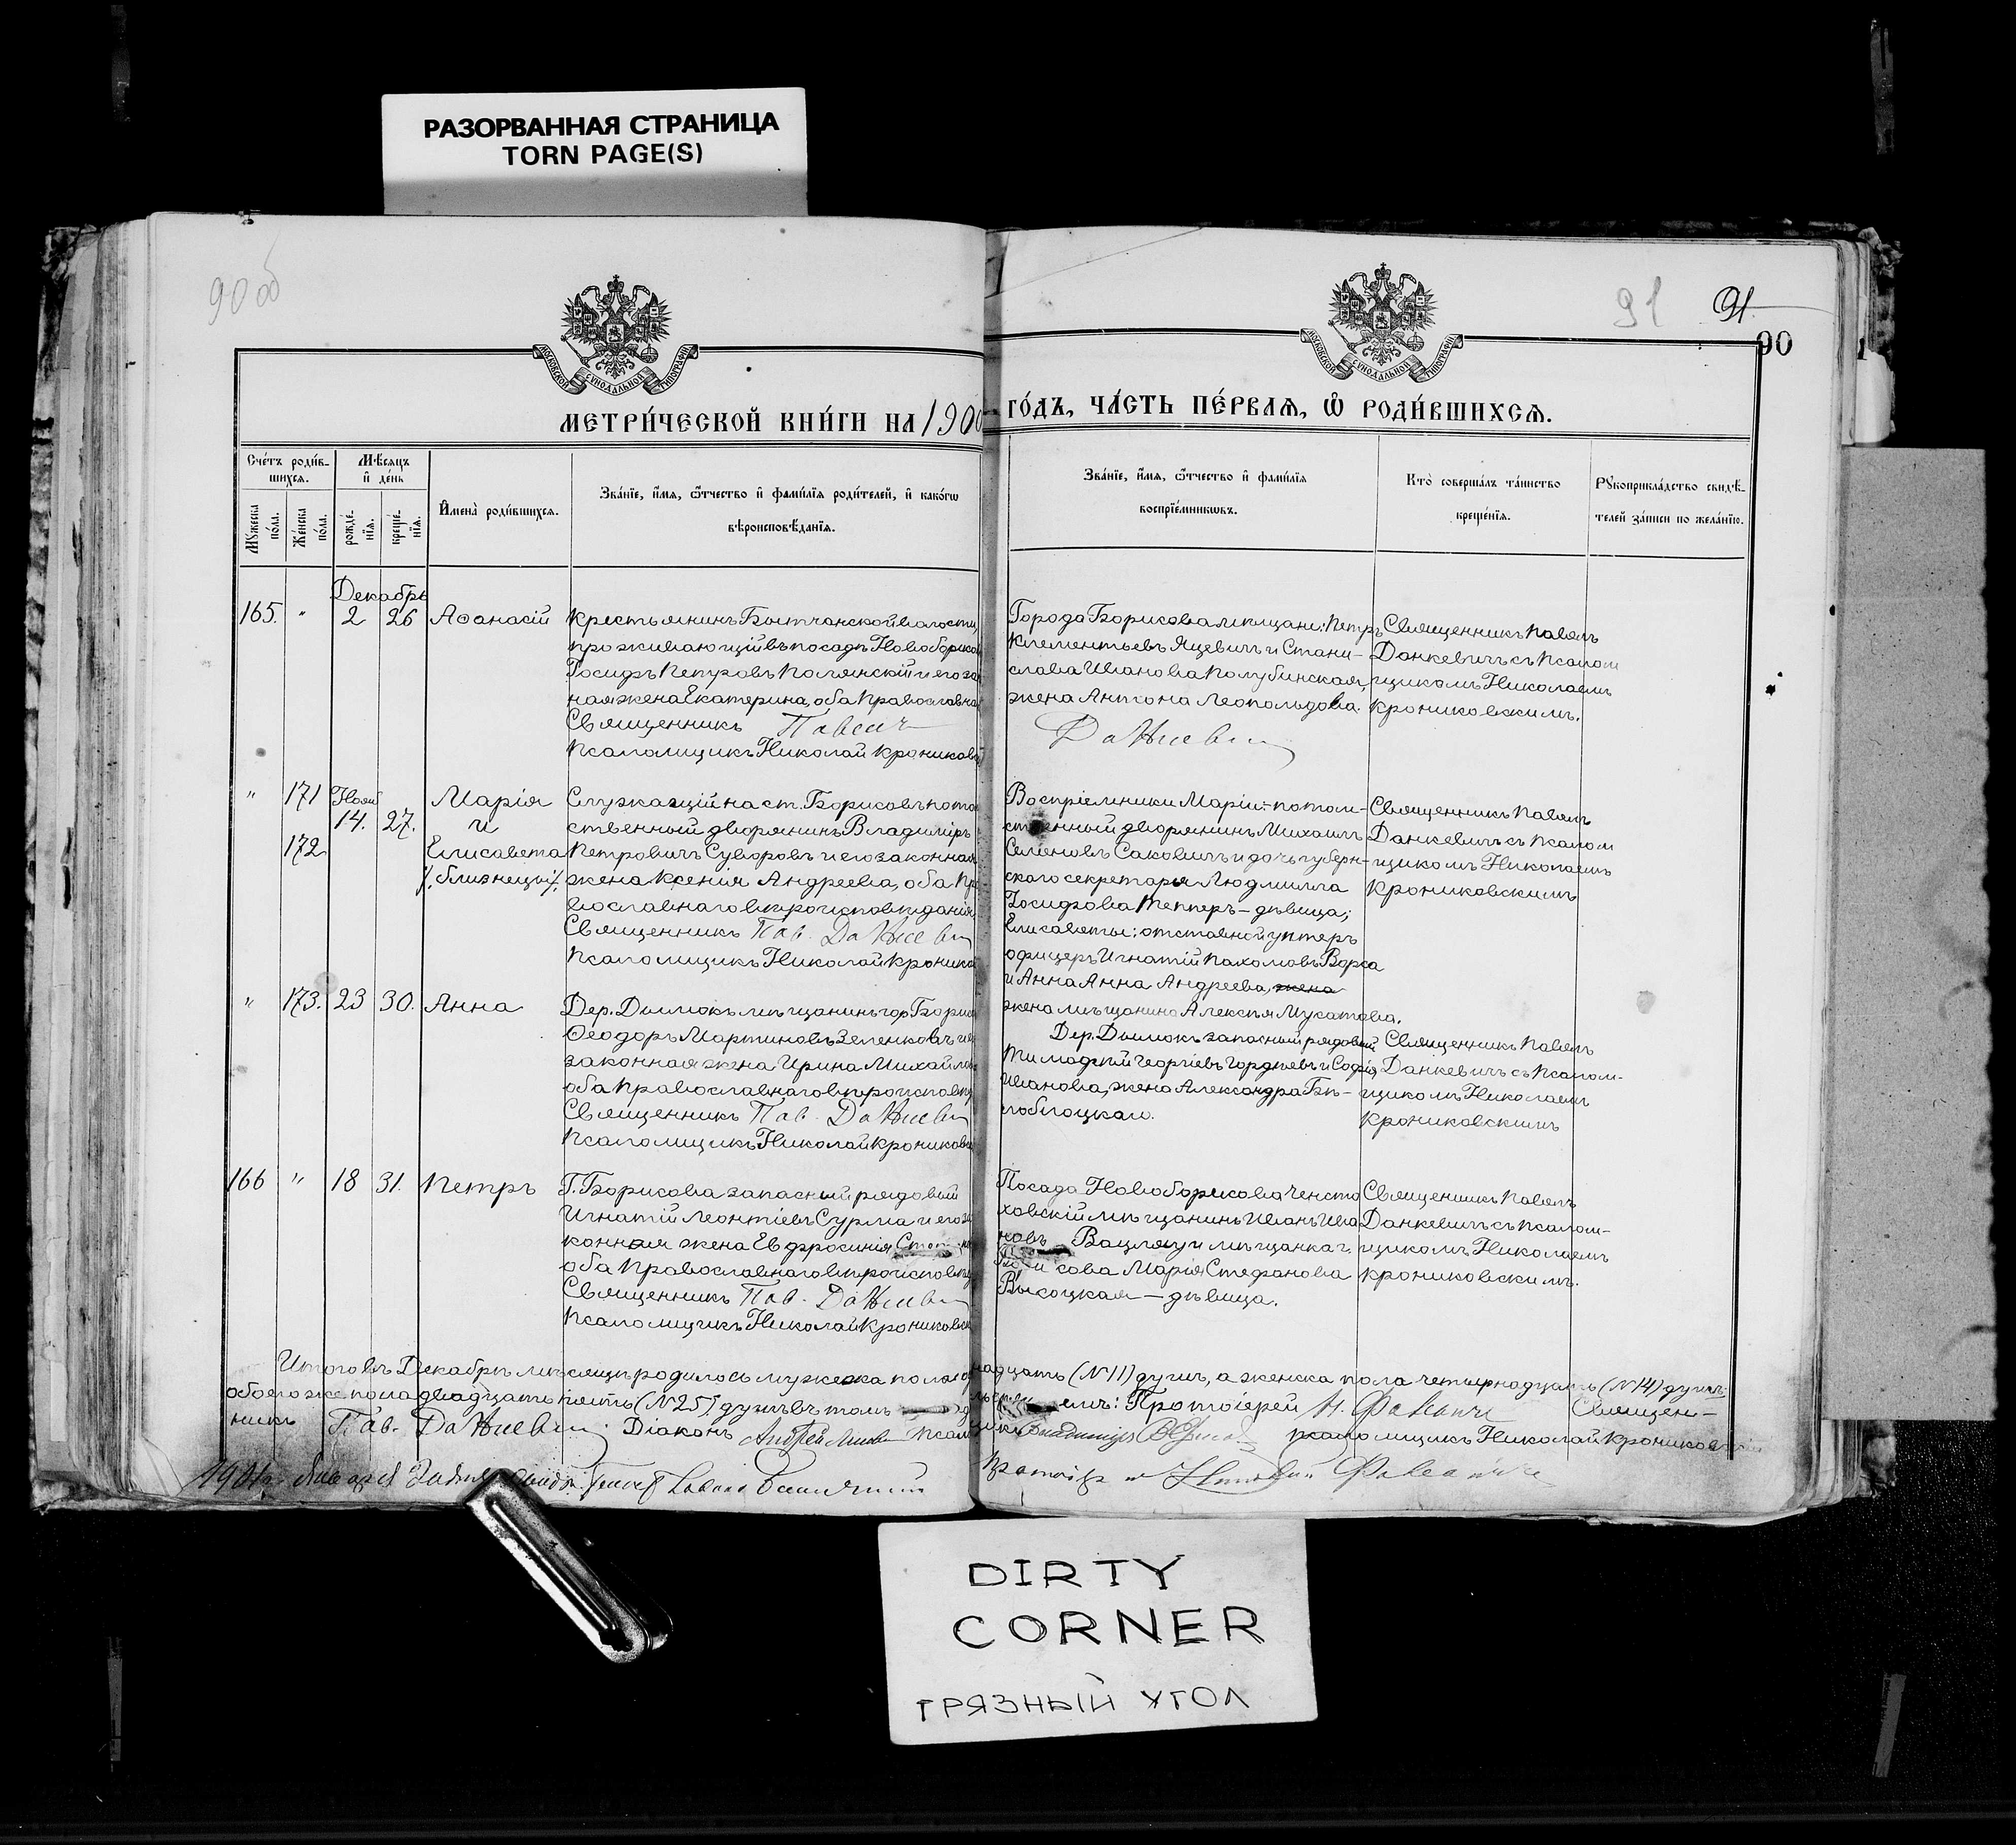 РАЗОРВАННАЯ СТРАНИЦА
TORN PAGE(S)
90 об
91 91
90
МОСКОВСКОЙ СѴНОДАЛЬНОЙ ТИПОГРАФІИ
МОСКОВСКОЙ СѴНОДАЛЬНОЙ ТИПОГРАФІИ
МЕТРИ́ЧЕСКОЙ КНИ́ГИ НА 1900
ГО́ДЪ, ЧА́СТЬ ПЕ́РВАЯ, Ѡ҆ РОДИ́ВШИХСѦ.
Сче́тъ роди́в-
шихся.
Мѣ́сяцъ
и҆ де́нь
Мꙋ́жеска по́ла.
Же́нска по́ла.
рожде́-нїѧ.
креще́-нїѧ.
И҆мена̀ роди́вшихсѧ.
Зва́нїе, и҆́мѧ, ѻ҆́тчество и҆ фами́лїѧ роди́телей, и҆ како́гѡ
вѣроисповѣ́данїѧ.
Зва́нїе, и҆́мѧ, ѻ҆́тчество и҆ фами́лїѧ
воспрїе́мникѡвъ.
Кто̀ соверша́лъ та́инство
креще́нїѧ.
Рꙋкоприкла́дство свидѣ́-
телей за́писи по жела́нїю.
Декабрь
165. " 2 26 Аѳанасій
Крестьянинъ Бытчанской волости,
проживающій въ посадѣ Новоборисов
Іосифъ Петровъ Полянскій и его зак
ная жена Екатерина, оба Православна
Священникъ Павелъ
Псаломщикъ Николай Крониковс
Города Борисова мѣщане: Петръ
Климентьевъ Яцевичъ и Стани-
слава Иванова Полубинская,
жена Антона Леопольдова.
Данкевич
Священникъ Павелъ
Данкевичъ съ Псалом
щикомъ Николаемъ
Крониковскимъ.
" 171 Нояб 14. 27. Марія
и
172 Елисавета
/близнецы/,
Служащій на ст. Борисовъ потом
ственный дворянинъ Владиміръ
Петровичъ Суворовъ и его законная
жена Ксенія Андреева, оба Пра
вославнаго вѣроисповѣданія
Священникъ Пав. Данкевич
Псаломщикъ Николай Кроников
Воспріемники Маріи:-потом-
ственный дворянинъ Михаилъ
Семеновъ Саковичъ и дочь губерн-
скаго секретаря Людмилла
Іосифова Тепперъ-дѣвица;
Елисаветы: отставной унтеръ
офицеръ Игнатій Пахомовъ Ворса
и Анна Анна Андреева, жена
жена мѣщанина Алексѣя Мукатова.
Священникъ Павелъ
Данкевичъ съ Псалом
щикомъ Николаемъ
Крониковскимъ
" 173. 23 30. Анна
Дер. Дымокъ мѣщанинъ гор. Борис
Ѳеодоръ Мартиновъ Зеленковъ и е
законная жена Ирина Михайлов
оба Православнаго вѣроисповѣд
Священникъ Пав. Данкевич
Псаломщикъ Николай Крониковс
Дер. Дымокъ запасный рядовый
Тимоѳей Георгіевъ Гордѣевъ и Софія
Иванова, жена Александра Бѣ-
лоблоцкаго.
Священникъ Павелъ
Данкевичъ съ Псалом-
щикомъ Николаемъ
Крониковскимъ
166 " 18 31. Петръ
Г. Борисова запасный рядовый
Игнатій Леонтіевъ Сурма и его за
конная жена Евфросинія
оба Православнаго вѣроисповѣд
Священникъ Пав. Данкевич
Псаломщикъ Николай Крониковск
Посада Новоборисова Ченсто
ховскій мѣщанинъ Иванъ Ива
новъ и мѣщанка г.
Борисова Марія Стефанова
Высоцкая — дѣвица.
Священникъ Павелъ
Данкевичъ съ псалом-
щикомъ Николаемъ
Крониковскимъ.
Итого въ Декабрѣ мѣсяцѣ родилось мужеска пола одиннадцать (№ 11) душъ, а женска пола четырнадцать (№ 14) душъ:
обоего же пола двадцать пять (№ 25) душъ въ томъ Протоіерей Священ-
никъ Пав. Данкевич. Діаконъ Андрей Псаломщикъ псаломщикъ Николай Крониковскій
1901
DIRTY
CORNER
ГРЯЗНЫЙ УГОЛ